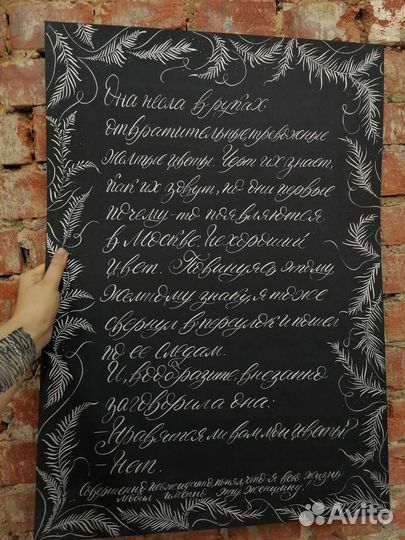 Она несла в руках
отвратительные тревожные
желтые цветы. Черт их знает,
как их зовут, но они первые
почему-то появляются
в Москве. Нехороший
цвет. Повинуясь этому
желтому знаку, я тоже
свернул в переулок и пошел
по ее следам.
И, вообразите, внезапно
заговорила она:
- Нравятся ли вам мои цветы?
- Нет.
Совершенно неожиданно понял, что я всю жизнь
любил именно эту женщину.
Avito